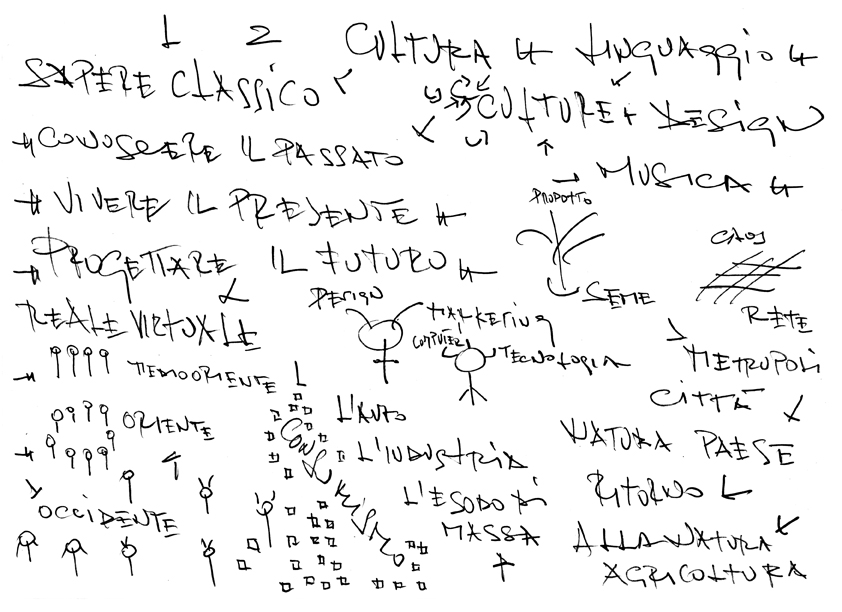 1 2
CULTURA LINGUAGGIO
SAPERE CLASSICO
CULTURE + DESIGN
CONOSCERE IL PASSATO
MUSICA
VIVERE IL PRESENTE
PRODOTTO
PROGETTARE IL FUTURO
CAOS
SEME
RETE
REALE VIRTUALE
DESIGN
MARKETING
COMPUTER
TECNOLOGIA
METROPOLI
CITTÀ
MEDIO ORIENTE
ORIENTE
OCCIDENTE
CONSUMISMO
L'AUTO
L'INDUSTRIA
L'ESODO DI
MASSA
NATURA PAESE
RITORNO
ALLA NATURA
AGRICOLTURA